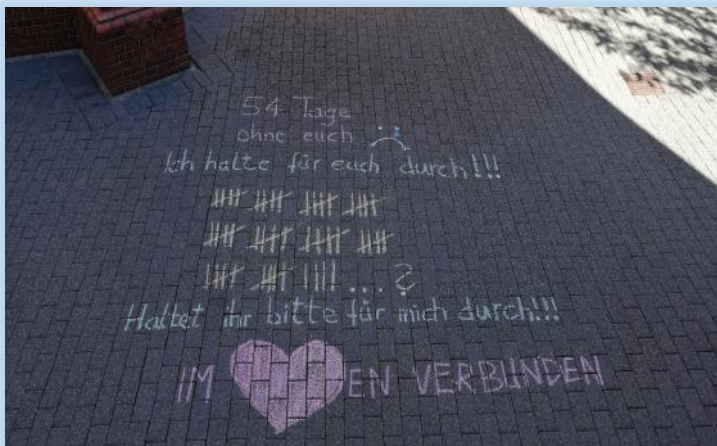 54 Tage
ohne euch
Ich halte für euch durch!!!
... ?
Haltet ihr bitte für mich durch!!!
IM ♥EN VERBUNDEN